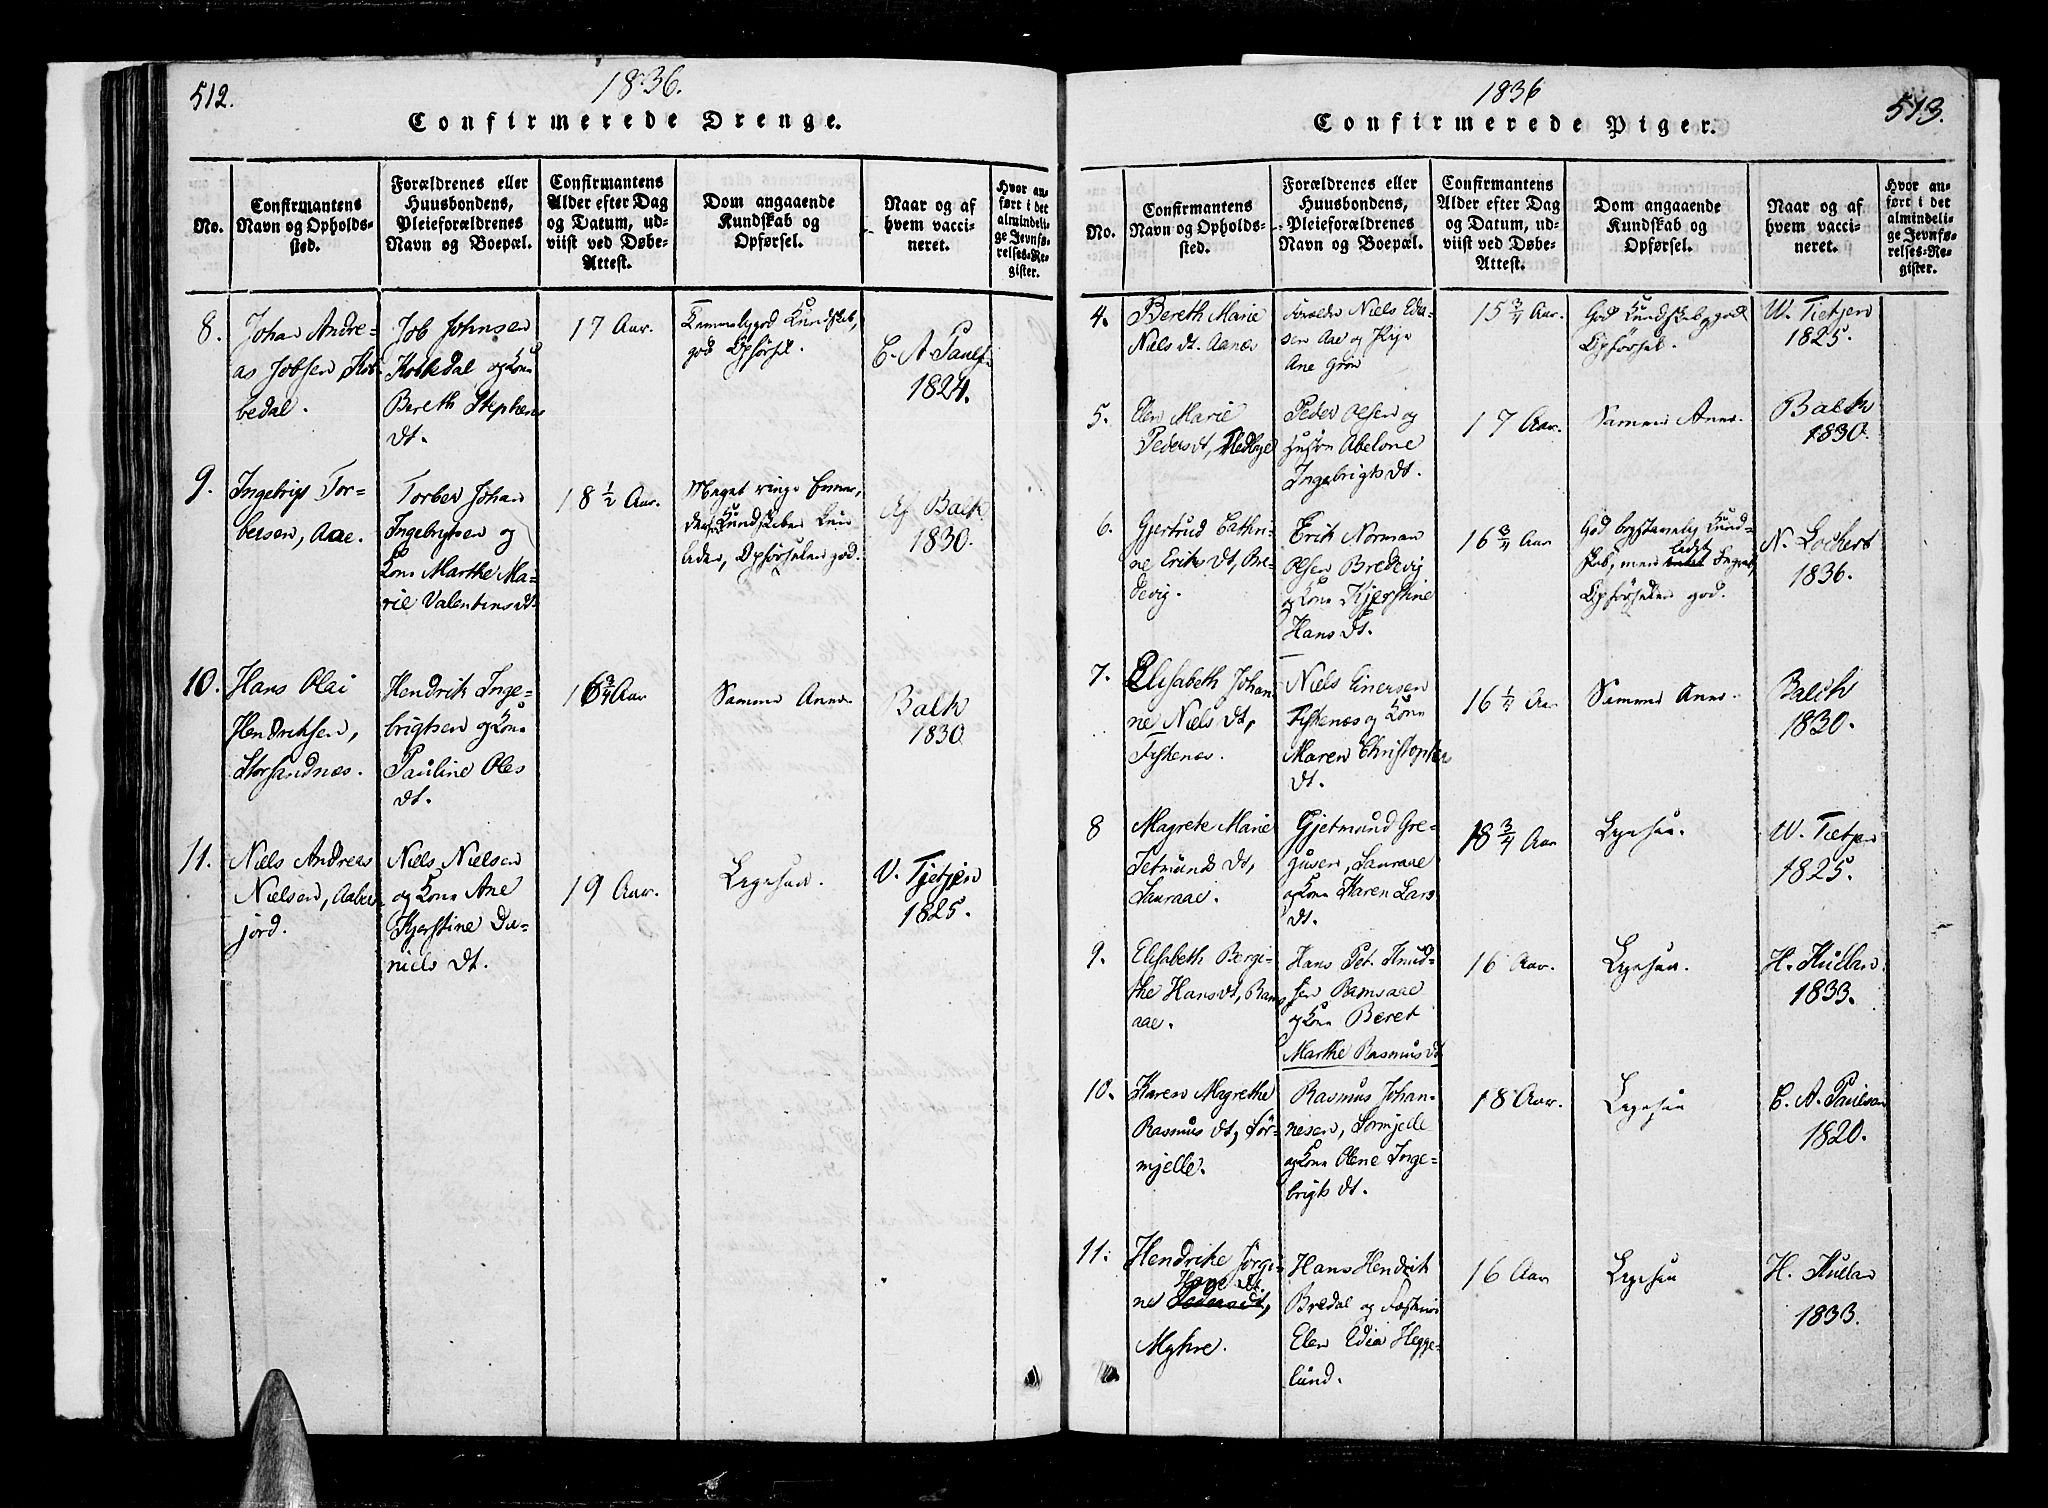 512.
1836.
Confirmerede Drenge.
No.
Confirmantens
Navn og Opholds-
sted.
Forældrenes eller
Huusbondens,
Pleieforældrenes
Navn og Boepæl.
Confirmantens
Alder efter Dag
og Datum, ud-
viist ved Døbe-
Attest.
Dom angaaende
Kundskab og
Opførsel.
Naar og af
hvem vacci-
neret.
Hvor an-
ført i det
almindeli-
ge Jevnfø-
relses-Re-
gister.
8.
Johan Andre-
as Jobsen,
bedal.
Job Johnsen
og Kone
Bereth Stephens
dt.
17 Aar.
god Kundskab,
god Opførsel.
C. A. Pauls.
1824.
9.
Ingebrigt Tor-
bersen, Aae.
Torber Johan
Ingebrigtsen og
Kone Marthe Ma-
rie Valentinsdt.
18 1/2 Aar.
Meget ringe
Kundskaber
Opførselen god.
Balk
1830.
10.
Hans Olai
Hendriksen,
Storsandnæs.
Hendrik Inge-
brigtsen og Kone
Pauline Oles
dt.
16 3/4 Aar
Samme Anm.
Balk
1830
11.
Niels Andreas
Nielsen,
jord.
Niels Nielsen
og Kone Ane
Kjerstine Da-
niels dt.
19 Aar.
Ligesaa.
V. Tjetjen
1825.
1836
513.
Confirmerede Piger.
No.
Confirmantens
Navn og Opholds-
sted.
Forældrenes eller
Huusbondens,
Pleieforældrenes
Navn og Boepæl.
Confirmantens
Alder efter Dag
og Datum, ud-
viist ved Døbe-
Attest.
Dom angaaende
Kundskab og
Opførsel.
Naar og af
hvem vacci-
neret.
Hvor an-
ført i det
almindeli-
ge Jevnfø-
relses-Re-
gister.
4.
Bereth Marie
Niels dt. Aanæs
Niels
sen Aae og Pige
Ane Grøn
15 3/4 Aar.
God Kundskab, god
Opførsel.
W. Tietjen
1825.
5.
Elen Marie
Pedersdt, Nedbye
Peder Olsen og
Hustru Abelone
Ingebrigts dt.
17 Aar.
Samme Anm.
Balch
1830.
6.
Gjertrud Cathri-
ne Eriks dt, Bre-
devig.
Erik Norman
Olsen Bredevig
og Kone Kjerstine
Hans dt.
16 3/4 Aar
God bogstavelig Kund-
skab, men
Opførselen god.
N. Lochert
1836.
7.
Elisabeth Johan-
ne Niels dt,
Fiskenæs.
Niels Einersen
Fiskenæs og Kone
Maren Christopher
dt.
16 1/4 Aar
Samme Anm.
Balch
1830.
8
Magrete Marie
Jetmunds dt,
Sauraae.
Gjetmund Gre-
gusen, Sauraae
og Kone Karen Lars
dt.
18 3/4 Aar
Ligesaa.
W. Tietjen
1825.
9.
Elisabeth Bergi-
the Hansdt, Rams
aae.
Hans Pet. Knud-
sen Ramsaae
og Kone Beret
Marthe Rasmusdt
16 Aar.
Ligesaa.
H. Kullan
1833.
10.
Karen Magrethe
Rasmus dt, Sør-
mjelle.
Rasmus Johan-
nesen, Sørmjelle
og Kone Olene Inge-
brigts dt.
18 Aar.
Ligesaa
C. A. Paulsen
1820.
11.
Hendrike Jørgi-
Hans dt.
ne Pedersdt,
Myhre.
Hans Hendrik
Bredal og
Elen Edia Hegge-
lund.
16 Aar
Ligesaa
H. Kullan
1833.